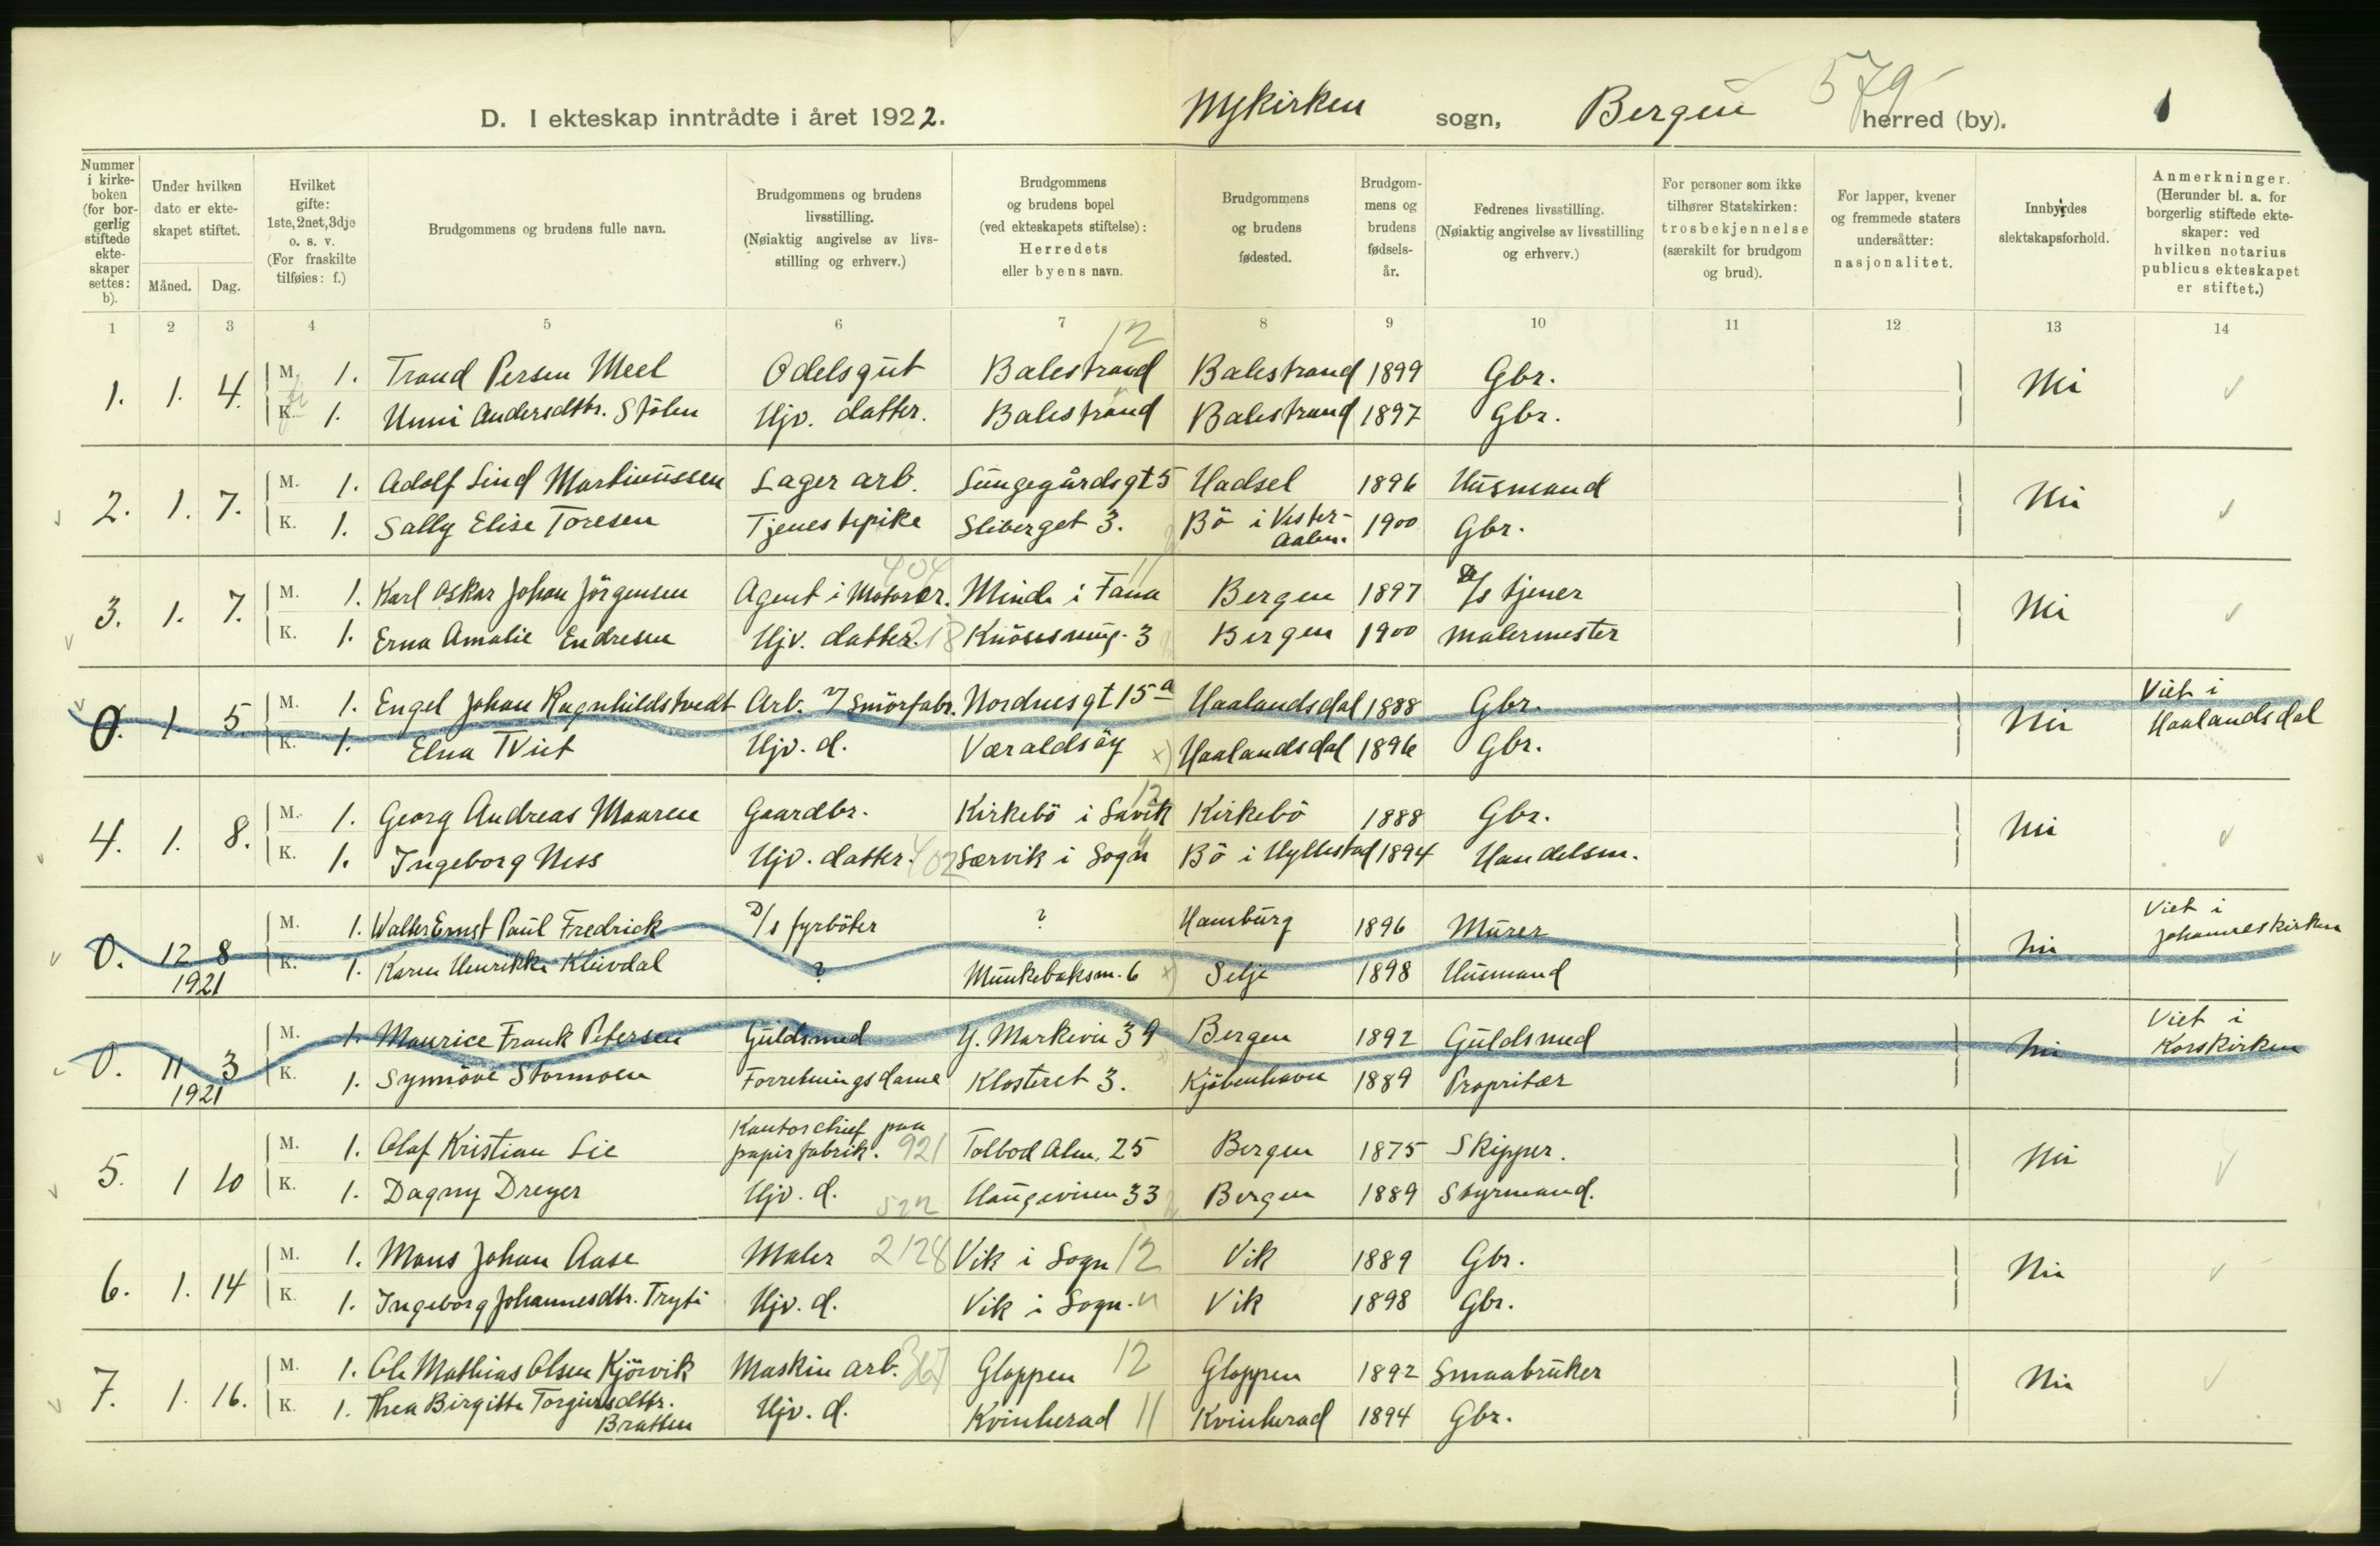 D. I ekteskap inntrådte i året 1922. Nykirken sogn, Bergen herred (by). 579
Nummer i kirkeboken (for borgerlig stiftede ekteskaper settes: b).
Under hvilken dato er ekteskapet stiftet.
Måned. Dag.
Hvilket gifte: 1ste, 2net, 3dje o. s. v. (For fraskilte tilføies: f.)
Brudgommens og brudens fulle navn.
Brudgommens og brudens livsstilling. (Nøiaktig angivelse av livsstilling og erhverv.)
Brudgommens og brudens bopel (ved ekteskapets stiftelse): Herredets eller byens navn.
Brudgommens og brudens fødested.
Brudgommens og brudens fødselsår.
Fedrenes livsstilling. (Nøiaktig angivelse av livsstilling og erhverv.)
For personer som ikke tilhører Statskirken: trosbekjennelse (særskilt for brudgom og brud).
For lapper, kvener og fremmede staters undersåtter: nasjonalitet.
Innbyrdes slektskapsforhold.
Anmerkninger. (Herunder bl. a. for borgerlig stiftede ekteskaper: ved hvilken notarius publicus ekteskapet er stiftet.)
1 2 3 4 5 6 7 8 9 10 11 12 13 14
12
1. 1. 4. M. 1. Trond Persen Meel Odelsgut Balestrand Balestrand 1899 Gbr. Nei
K. 1. Unni Andersdttr. Stölen Hjv. datter. Balestrand Balestrand 1897 Gbr.
2. 1. 7. M. 1. Adolf Lind Martinussen Lager arb. Lungegårdsgt 5 Hadsel 1896 Husmand Nei
K. 1. Sally Elise Toresen Tjenestepike Sliberget 3. Bö i Vester-Aalen. 1900 Gbr.
3. 1. 7. M. 1. Karl Oskar Johan Jörgensen Agent i Motorer. 404 Minde i Fana 11 Bergen 1897 D/s tjener Nei
K. 1. Erna Amalie Endresen Hjv. datter. 218 Knösesmug. 3 Bergen 1900 Malermester
0. 1. 5. M. 1. Engel Johan Ragnhildstvedt Arb. v/ Smörfabr. Nordnesgt 15a Haalandsdal 1888 Gbr. Nei Viet i Haalandsdal
K. 1. Elna Tveit Hjv. d. Væraldsöy x) Haalandsdal 1896 Gbr.
4. 1. 8. M. 1. Georg Andreas Maaren Gaardbr. Kirkebö i Lavik 12 Kirkebö 1888 Gbr. Nei
K. 1. Ingeborg Ness Hjv. datter. 402 Særvik i Sogn Bö i Hyllestad 1894 Handelsm.
0. 12 8 M. 1. Walter Ernst Paul Fredrick D/s fyrböter ? Hamburg 1896 Murer Nei Viet i Johanneskirken
1921 K. 1. Karen Henrikke Kleivdal ? Munkebaksm. 6 x) Selje 1898 Husmand
0. 11 3 M. 1. Maurice Frank Petersen Guldsmed Y. Markevei 39 Bergen 1892 Guldsmed Nei Viet i Korskirken
1921 K. 1. Synnöve Stormoen Forretningsdame Klosteret 3. Kjöbenhavn 1889 Propritær
5. 1 10 M. 1. Olaf Kristian Lie Kontorchief paa papirfabrik. 921 Tolbod Alm. 25 Bergen 1875 Skipper. Nei
K. 1. Dagny Dreyer Hjv. d. 522 Haugeveien 33 Bergen 1889 Styrmand.
6. 1. 14 M. 1. Mons Johan Aase Maler 2128 Vik i Sogn 12 Vik 1889 Gbr. Nei
K. 1. Ingeborg Johannesdtr. Tryti Hjv. d. Vik i Sogn. " Vik 1898 Gbr.
7. 1. 16. M. 1. Ole Mathias Olsen Kjörvik Maskin arb. Gloppen 12 Gloppen 1892 Smaabruker Nei
K. 1. Thea Birgitte Torgeirsdttr. Bratten Hjv. d. Kvinherad 11 Kvinherad 1894 Gbr.